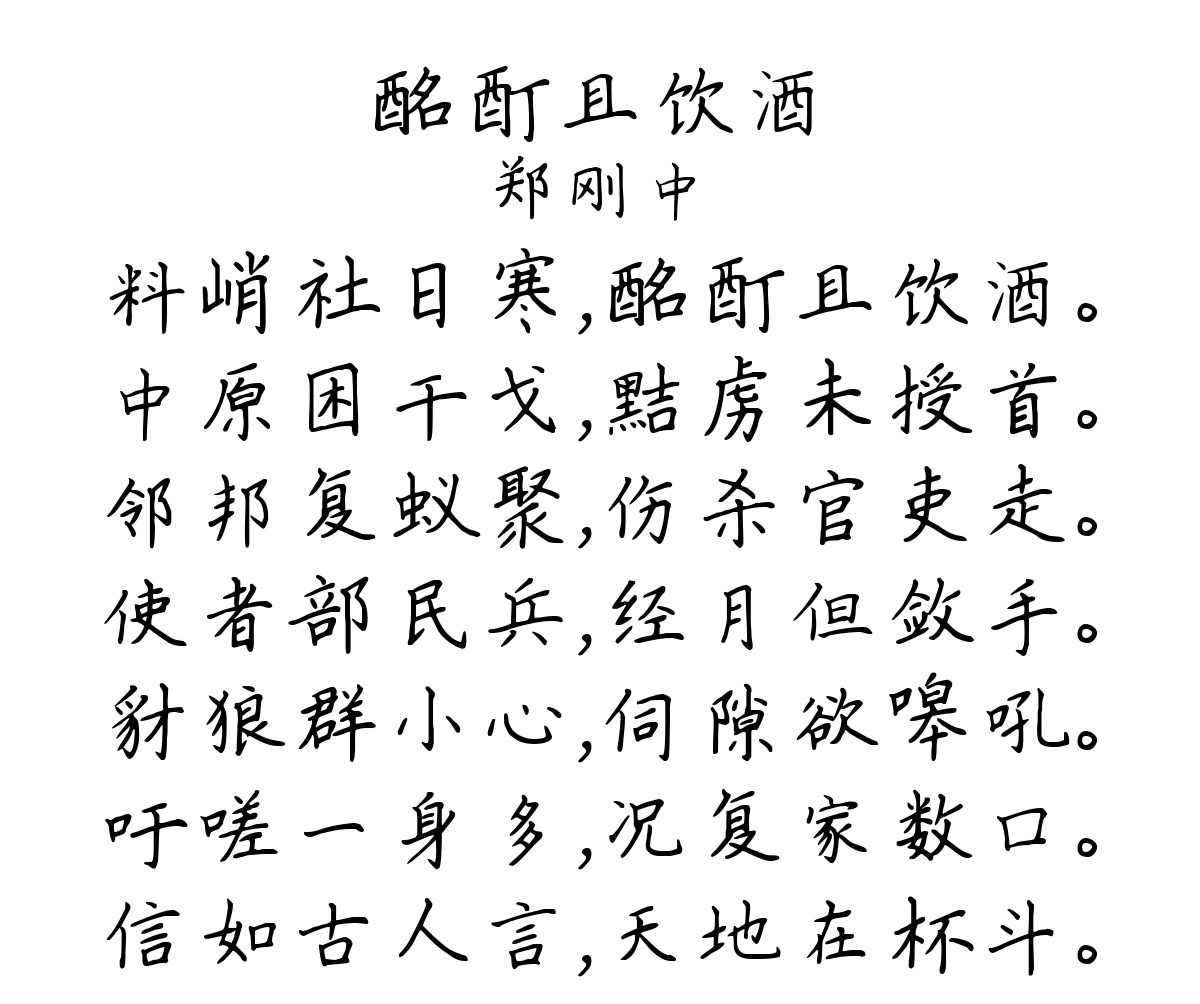 酩酊且饮酒
郑刚中
料峭社日寒,酩酊且饮酒。
中原困干戈,黠虏未授首。
邻邦复蚁聚,伤杀官吏走。
使者部民兵,经月但敛手。
豺狼群小心,伺隙欲嗥吼。
吁嗟一身多,况复家数口。
信如古人言,天地在杯斗。